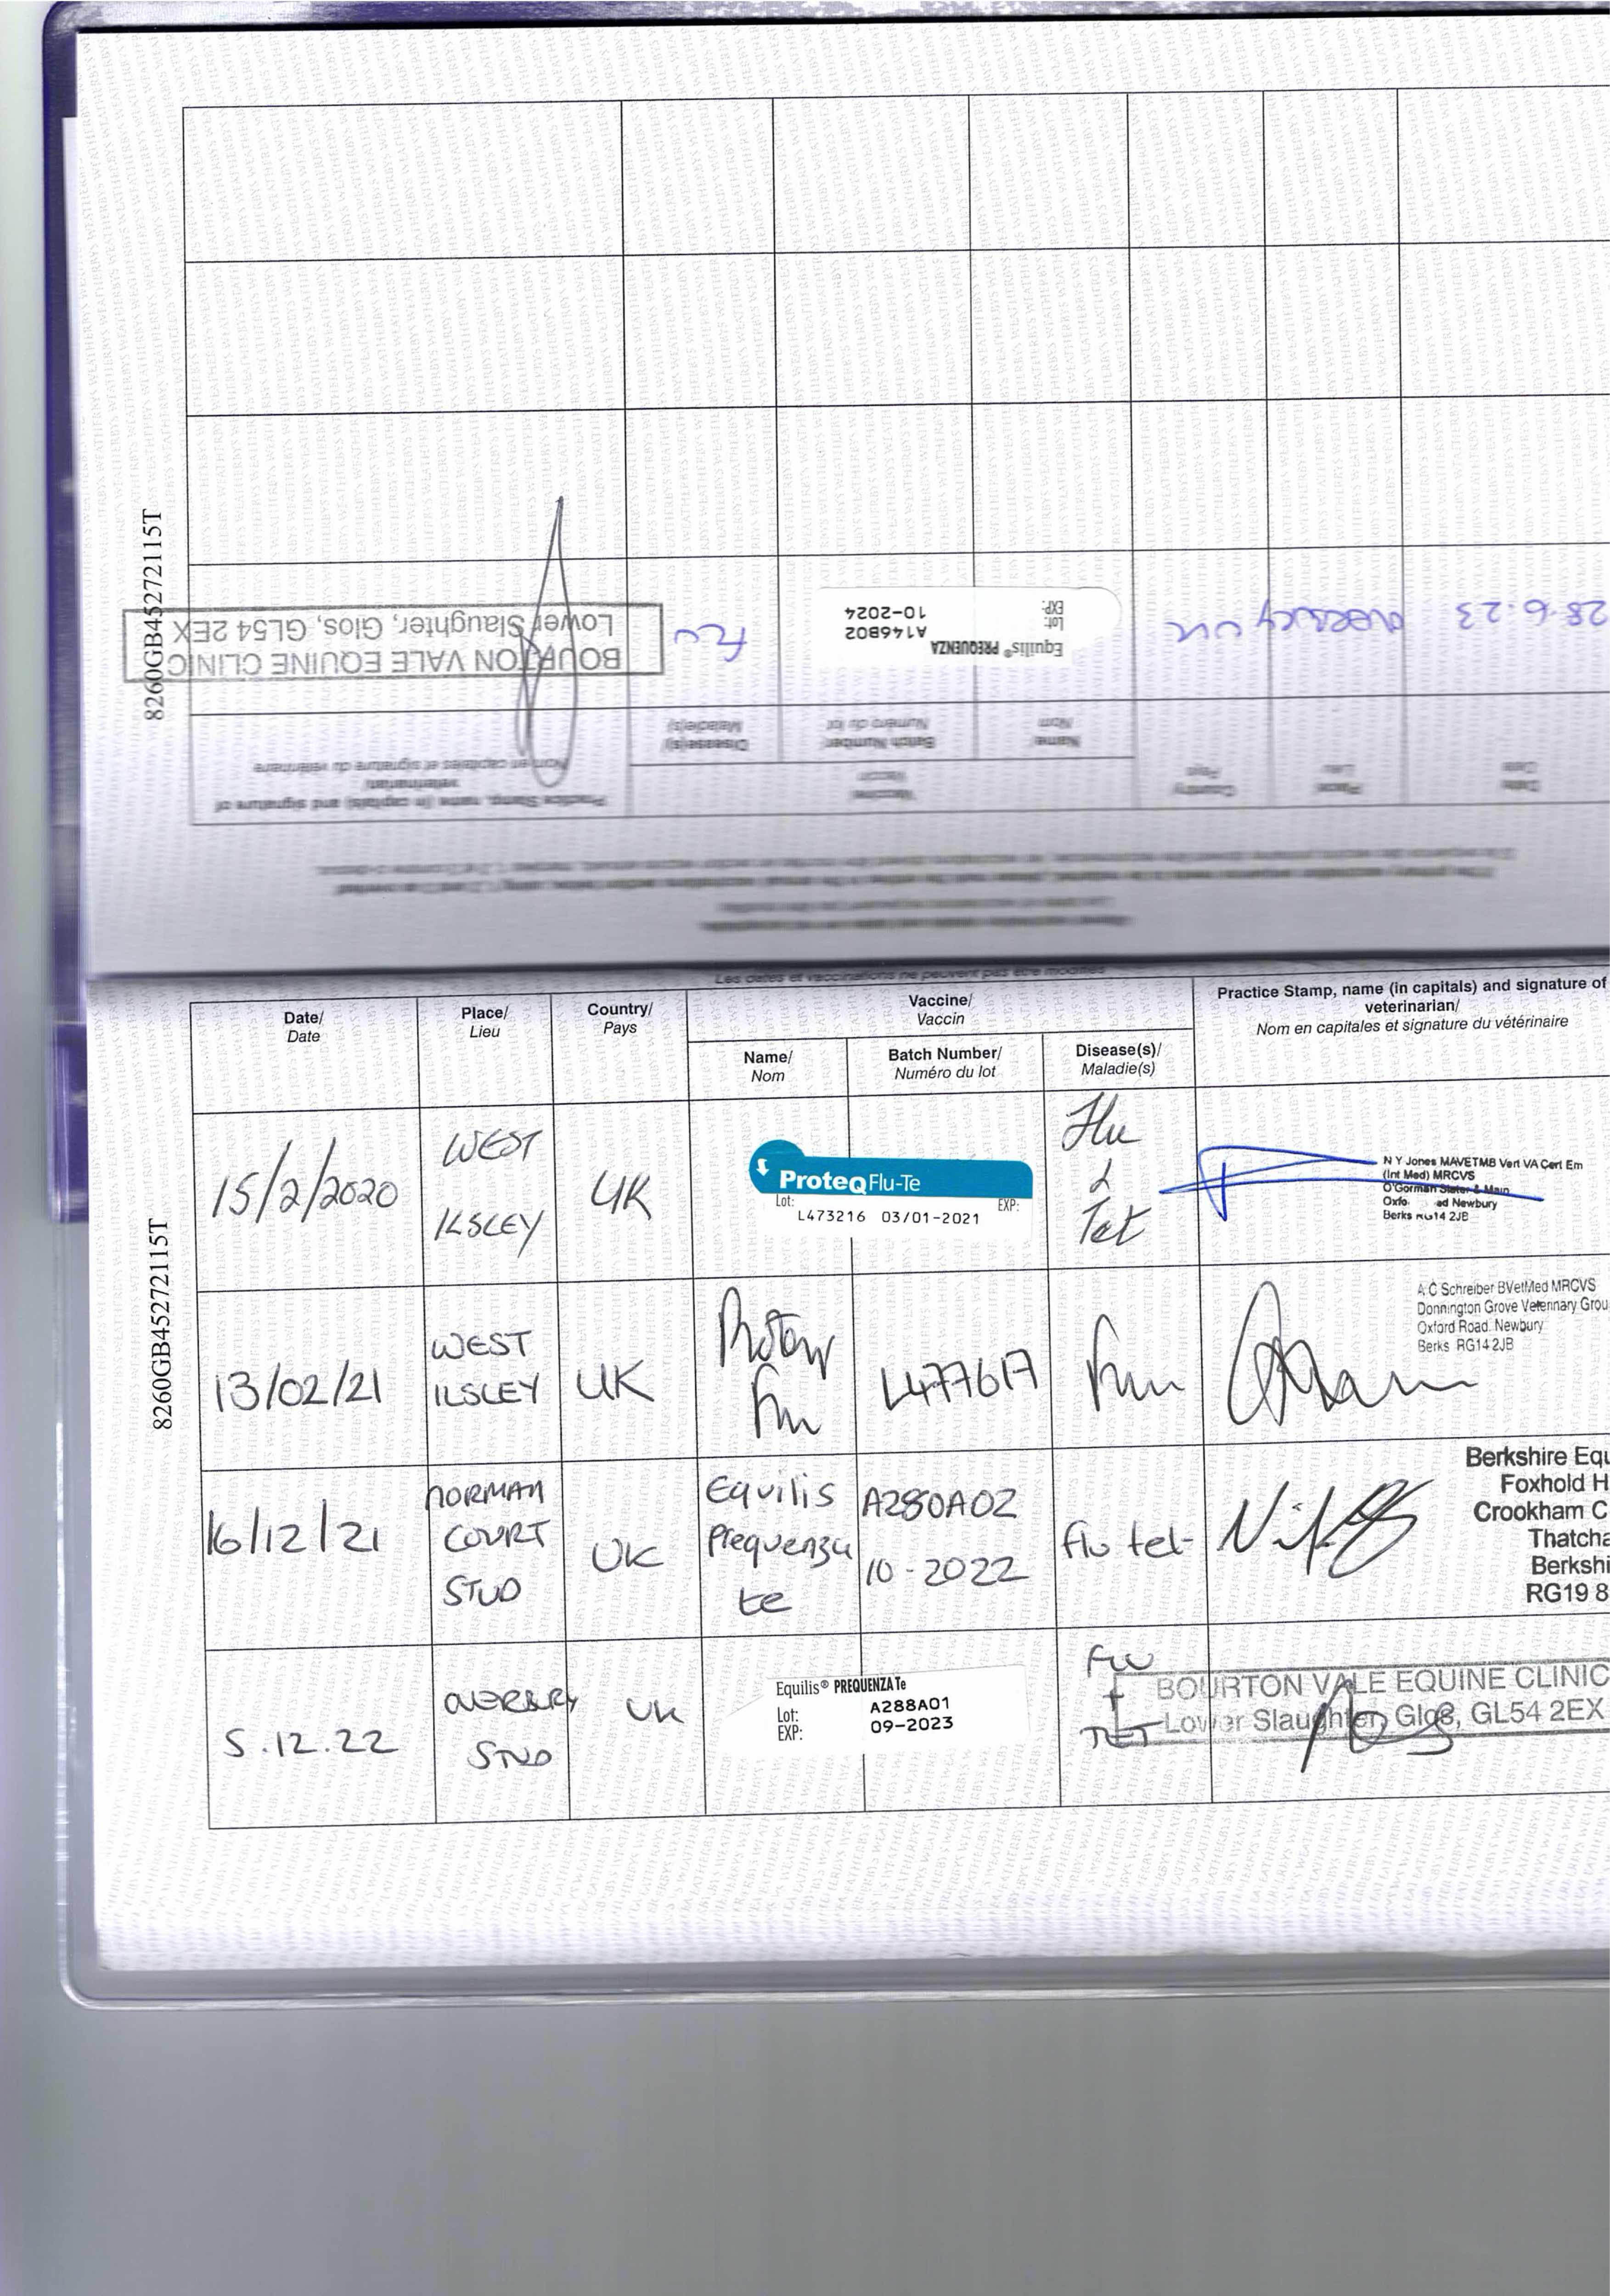 8260GB452721115T
Practice Stamp, name (in capitals) and signature of
veterinarian/
Nom en capitales et signature du vétérinaire
Date/
Date
Place/
Lieu
Country/
Pays
Vaccine/
Vaccin
Name/
Nom
Batch Number/
Numéro du lot
Disease(s)/
Maladie(s)
28.6.23
UK
Equilis® PREQUENZA
Lot: A146B02
EXP: 10-2024
FLU
BOURTON VALE EQUINE CLINIC
Lower Slaughter, Glos, GL54 2EX
Les dates et vaccinations ne peuvent pas être modifiés
8260GB452721115T
Date/
Date
Place/
Lieu
Country/
Pays
Vaccine/
Vaccin
Name/
Nom
Batch Number/
Numéro du lot
Disease(s)/
Maladie(s)
Practice Stamp, name (in capitals) and signature of
veterinarian/
Nom en capitales et signature du vétérinaire
15/2/2020
WEST
ILSLEY
UK
ProteqFlu-Te
Lot: EXP:
L473216 03/01-2021
Flu
&
Tet
N Y Jones MAVETMB Vert VA Cert Em
(Int Med) MRCVS
O'Gorman Slater & Main
Oxfo ad Newbury
Berks RG14 2JB
13/02/21
WEST
ILSLEY
UK
L477617
A C Schreiber BVetMed MRCVS
Donnington Grove Veterinary Grou
Oxford Road, Newbury
Berks RG14 2JB
16/12/21
NORMAN
COURT
STUD
UK
Equilis
Prequenza
te
A280A02
10-2022
flu tet
Berkshire Equ
Foxhold H
Crookham C
Thatcha
Berkshi
RG19 8
5.12.22
OVERBURY
STUD
UK
Equilis® PREQUENZA Te
Lot: A288A01
EXP: 09-2023
FLU
+
TET
BOURTON VALE EQUINE CLINIC
Lower Slaughter, Glos, GL54 2EX